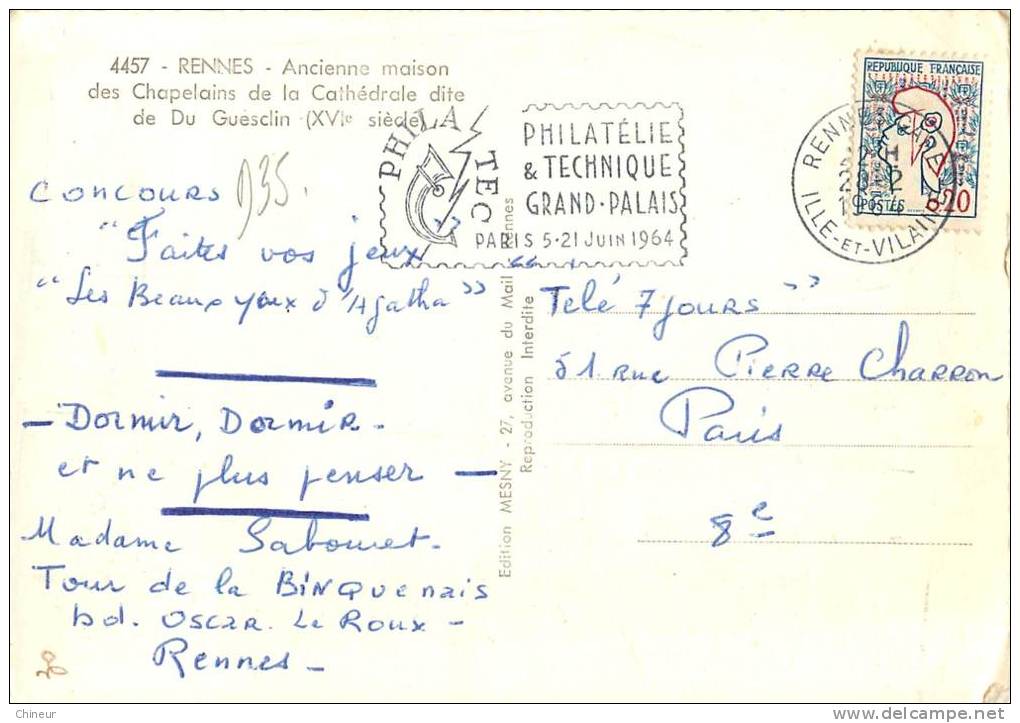 4457 - RENNES - Ancienne maison
des Chapelains de la Cathédrale dite
de Du Guesclin (XVIe siècle)
PHILATEC
PHILATÉLIE
& TECHNIQUE
GRAND-PALAIS
PARIS 5-21 JUIN 1964
REPUBLIQUE FRANÇAISE
POSTES 0.20
RENNES GARE
ILLE-ET-VILAINE
CONCOURS
935.
"Faites vos jeux"
"Les Beaux yeux d'Agatha"
- Dormir, Dormir -
et ne plus penser -
Madame Sabouret -
Tour de la BINQuenais
bd. OSCAR Le Roux -
Rennes -
Edition MESNY - 27, avenue du Mail Rennes
Reproduction Interdite
"Telé 7 jours"
51 rue PIERRE Charron
Paris
8e
Chineur
delcampe.net